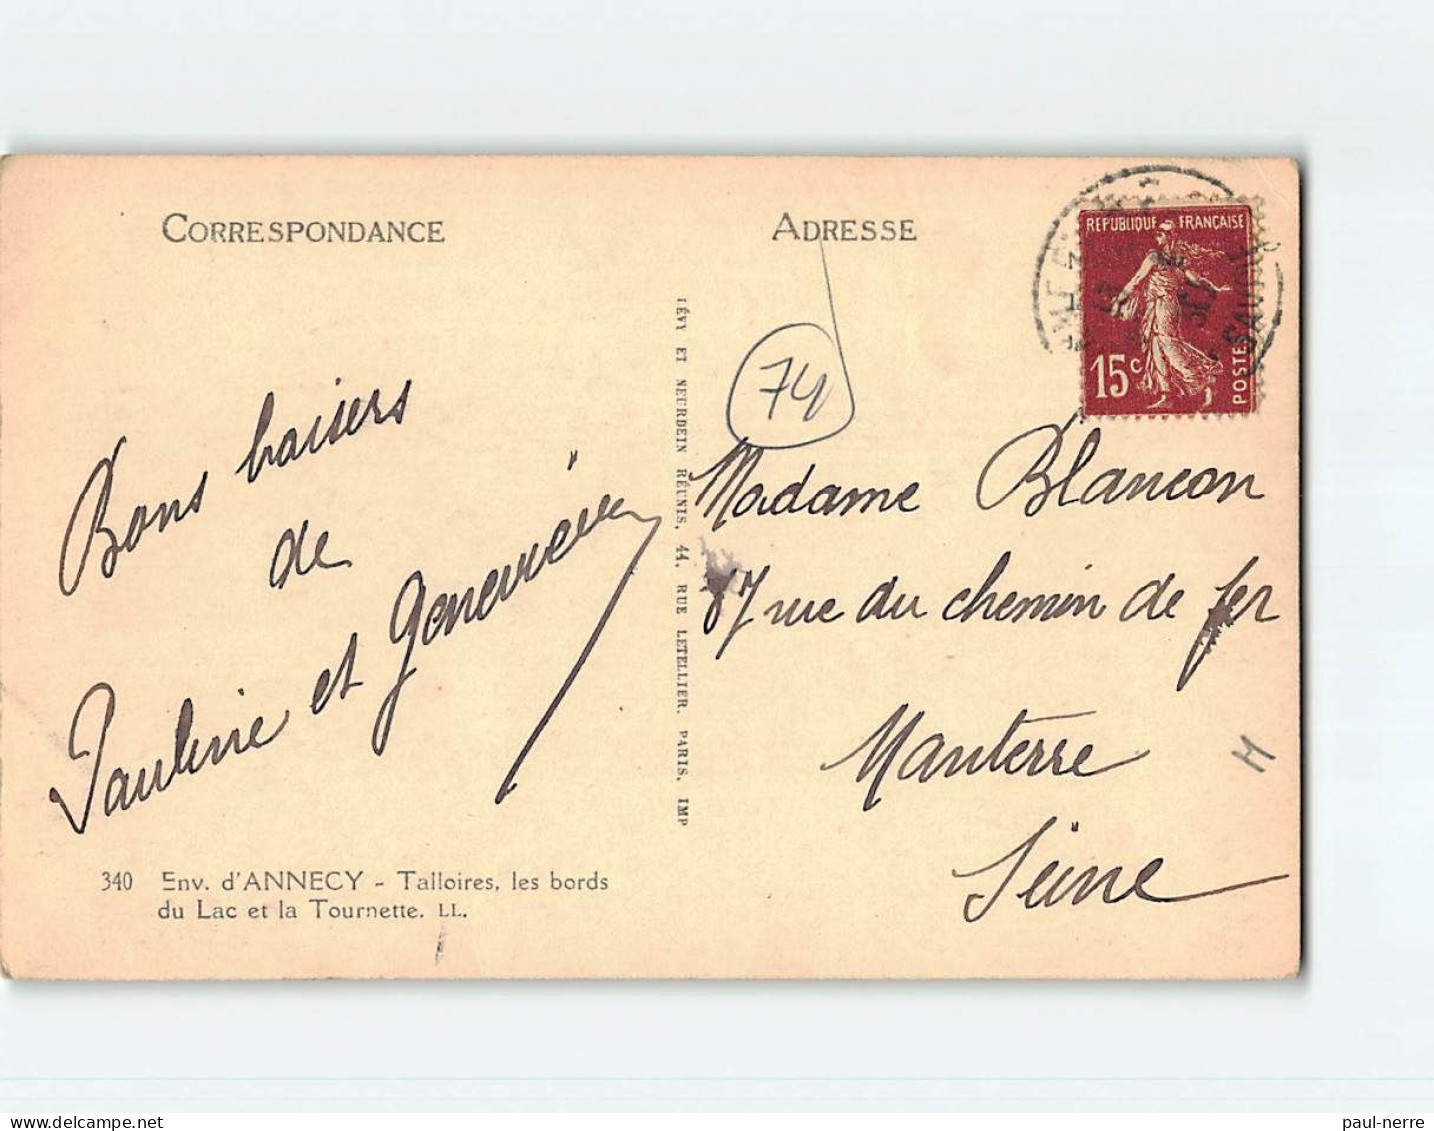 CORRESPONDANCE
Bons baisers
de
Pauline et Geneviève
340 Env. d'ANNECY - Talloires, les bords
du Lac et la Tournette. LL.
LÉVY ET NEURDEIN RÉUNIS, 44, RUE LETELLIER, PARIS, IMP
ADRESSE
74
REPUBLIQUE FRANÇAISE
15c
POSTES
SAVOIE
Madame Blancon
87 rue du chemin de fer
Nanterre
Seine
M
paul-nerre